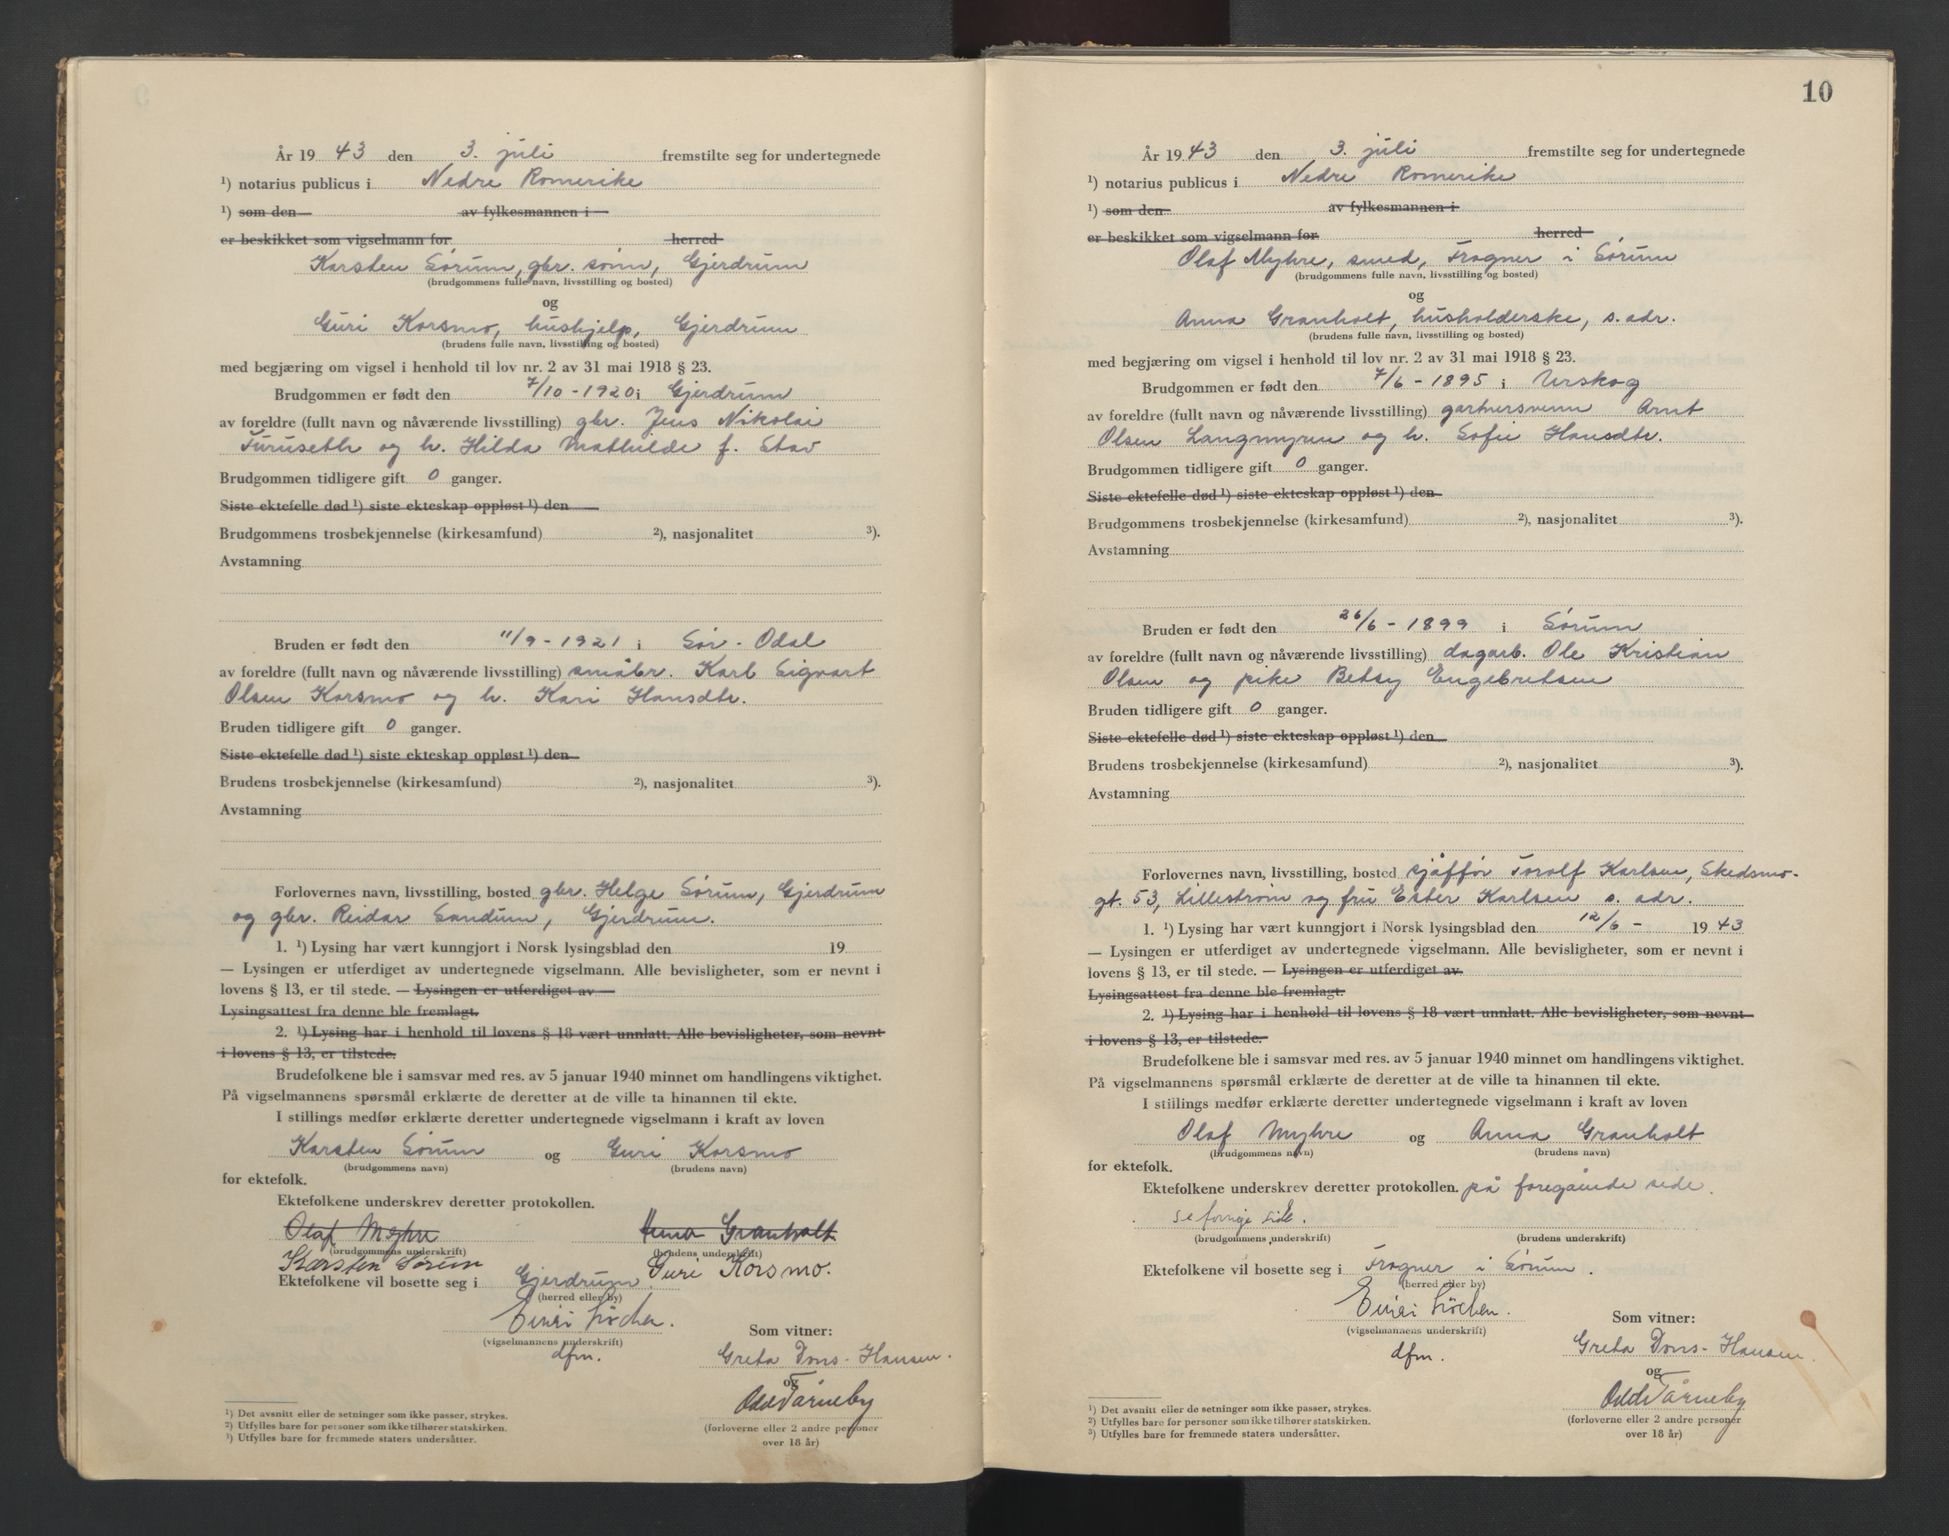 År 19 43 den 3. juli fremstilte seg for undertegnede
¹) notarius publicus i Nedre Romerike
¹) som den av fylkesmannen i
er beskikket som vigselmann for herred
Karsten Sørum, gbr. sønn, Gjerdrum
(brudgommens fulle navn, livsstilling og bosted)
og
Guri Korsmo, hushjelp, Gjerdrum
(brudens fulle navn, livsstilling og bosted)
med begjæring om vigsel i henhold til lov nr. 2 av 31 mai 1918 § 23.
Brudgommen er født den 7/10 - 1920 i Gjerdrum
av foreldre (fullt navn og nåværende livsstilling) gbr. Jens Nikolai
Furuseth og h. Hilda Mathilde f. Stav
Brudgommen tidligere gift 0 ganger.
Siste ektefelle død ¹) siste ekteskap oppløst ¹) den
Brudgommens trosbekjennelse (kirkesamfund) ²), nasjonalitet ³).
Avstamning
Bruden er født den 11/9 - 1921 i Sør-Odal
av foreldre (fullt navn og nåværende livsstilling) småbr. Karl Sigvart
Olsen Korsmo og h. Kari Hansdtr.
Bruden tidligere gift 0 ganger.
Siste ektefelle død ¹) siste ekteskap oppløst ¹) den
Brudens trosbekjennelse (kirkesamfund) ²), nasjonalitet ³).
Avstamning
Forlovernes navn, livsstilling, bosted gbr. Helge Sørum, Gjerdrum
og gbr. Reidar Sandum, Gjerdrum.
1. ¹) Lysing har vært kunngjort i Norsk lysingsblad den 19
— Lysingen er utferdiget av undertegnede vigselmann. Alle bevisligheter, som er nevnt i
lovens § 13, er til stede. — Lysingen er utferdiget av
Lysingsattest fra denne ble fremlagt.
2. ¹) Lysing har i henhold til lovens § 18 vært unnlatt. Alle bevisligheter, som nevnt
i lovens § 13, er tilstede.
Brudefolkene ble i samsvar med res. av 5 januar 1940 minnet om handlingens viktighet.
På vigselmannens spørsmål erklærte de deretter at de ville ta hinannen til ekte.
I stillings medfør erklærte deretter undertegnede vigselmann i kraft av loven
Karsten Sørum og Guri Korsmo
(brudgommens navn) (brudens navn)
for ektefolk.
Ektefolkene underskrev deretter protokollen.
Olaf Myhre Anna Granholt
(brudgommens underskrift) (brudens underskrift)
Karsten Sørum Guri Korsmo.
Ektefolkene vil bosette seg i Gjerdrum
(herred eller by)
Einar Løchen.
(vigselmannens underskrift)
dfm.
Som vitner:
Greta Dons-Hansen.
og
Odd Tårneby
(forloverne eller 2 andre personer
over 18 år)
¹) Det avsnitt eller de setninger som ikke passer, strykes.
²) Utfylles bare for personer som ikke tilhører statskirken.
³) Utfylles bare for fremmede staters undersåtter.
10
År 19 43 den 3. juli fremstilte seg for undertegnede
¹) notarius publicus i Nedre Romerike
¹) som den av fylkesmannen i
er beskikket som vigselmann for herred
Olaf Myhre, smed, Frogner i Sørum
(brudgommens fulle navn, livsstilling og bosted)
og
Anna Granholt, husholderske, s. adr.
(brudens fulle navn, livsstilling og bosted)
med begjæring om vigsel i henhold til lov nr. 2 av 31 mai 1918 § 23.
Brudgommen er født den 7/6 - 1895 i Urskog
av foreldre (fullt navn og nåværende livsstilling) gartnersvenn Arnt
Olsen Langmyren og h. Sofie Hansdtr.
Brudgommen tidligere gift 0 ganger.
Siste ektefelle død ¹) siste ekteskap oppløst ¹) den
Brudgommens trosbekjennelse (kirkesamfund) ²), nasjonalitet ³).
Avstamning
Bruden er født den 26/6 - 1899 i Sørum
av foreldre (fullt navn og nåværende livsstilling) dagarb. Ole Kristian
Olsen og pike Betsy Engebretsen
Bruden tidligere gift 0 ganger.
Siste ektefelle død ¹) siste ekteskap oppløst ¹) den
Brudens trosbekjennelse (kirkesamfund) ²), nasjonalitet ³).
Avstamning
Forlovernes navn, livsstilling, bosted sjåffør Torolf Karlsen, Skedsmo-
gt. 53, Lillestrøm og fru Ester Karlsen s. adr.
1. ¹) Lysing har vært kunngjort i Norsk lysingsblad den 12/6 - 19 43
— Lysingen er utferdiget av undertegnede vigselmann. Alle bevisligheter, som er nevnt i
lovens § 13, er til stede. — Lysingen er utferdiget av
Lysingsattest fra denne ble fremlagt.
2. ¹) Lysing har i henhold til lovens § 18 vært unnlatt. Alle bevisligheter, som nevnt
i lovens § 13, er tilstede.
Brudefolkene ble i samsvar med res. av 5 januar 1940 minnet om handlingens viktighet.
På vigselmannens spørsmål erklærte de deretter at de ville ta hinannen til ekte.
I stillings medfør erklærte deretter undertegnede vigselmann i kraft av loven
Olaf Myhre og Anna Granholt
(brudgommens navn) (brudens navn)
for ektefolk.
Ektefolkene underskrev deretter protokollen. på foregående side.
se forrige side.
(brudgommens underskrift) (brudens underskrift)
Ektefolkene vil bosette seg i Frogner i Sørum.
(herred eller by)
Einar Løchen.
(vigselmannens underskrift)
dfm.
Som vitner:
Greta Dons-Hansen.
og
Odd Tårneby
(forloverne eller 2 andre personer
over 18 år)
¹) Det avsnitt eller de setninger som ikke passer, strykes.
²) Utfylles bare for personer som ikke tilhører statskirken.
³) Utfylles bare for fremmede staters undersåtter.